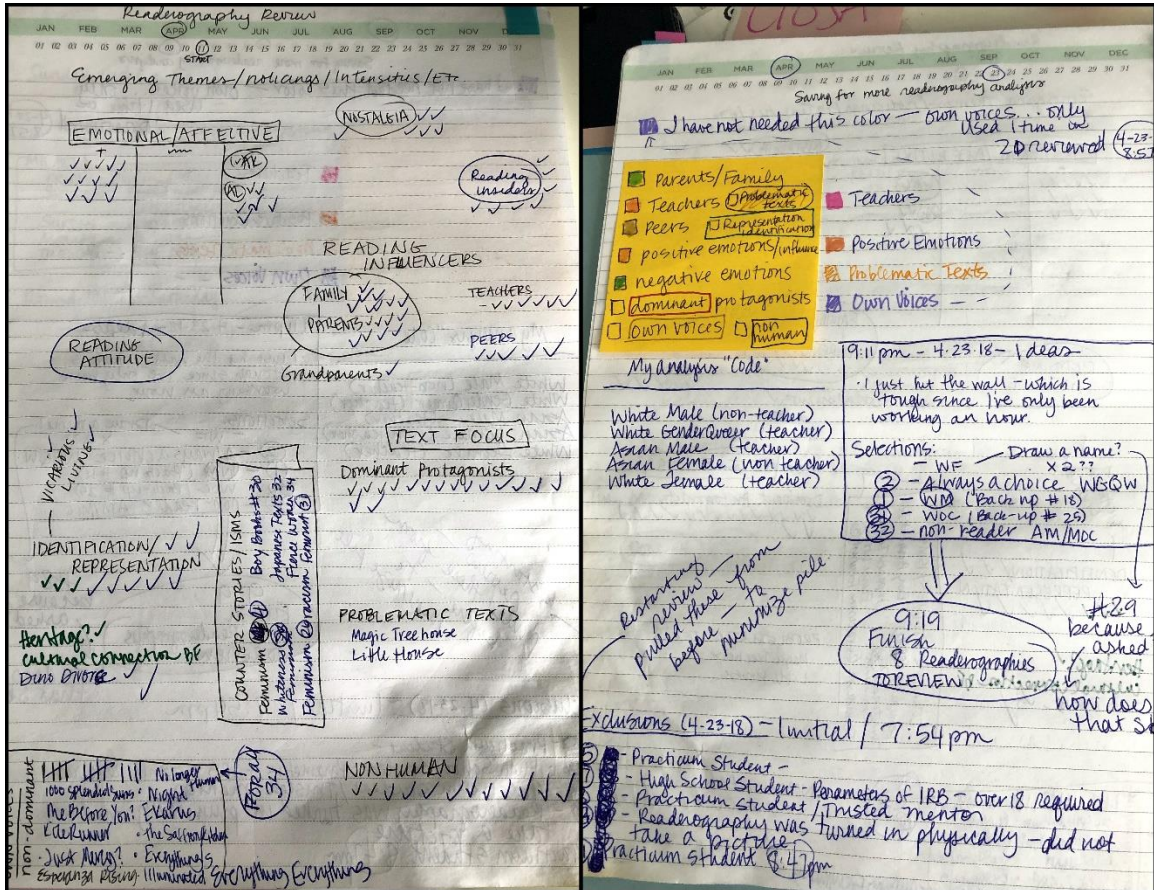 Readerography Review
JAN FEB MAR APR MAY JUN JUL AUG SEP OCT NOV
01 02 03 04 05 06 07 08 09 10 11 12 13 14 15 16 17 18 19 20 21 22 23 24 25 26 27 28 29 30 31
START
Emerging Themes/noticings/Intensities/Etc.
NOSTALGIA
EMOTIONAL/AFFECTIVE
+
AD
Reading insiders
READING
INFLUENCERS
FAMILY
PARENTS
Grandparents
TEACHERS
PEERS
READING
ATTITUDE
TEXT FOCUS
Dominant Protagonists
VICARIOUS
LIVING
IDENTIFICATION/
REPRESENTATION
COUNTER STORIES/ISMS
Boy Books #30
Japanese Texts 32
Feminism
Whiteness
Feminism racism Feminist 31
PROBLEMATIC TEXTS
Magic Treehouse
Little House
Heritage?
cultural connection BF
NONHUMAN
34
non-dominant
No longer Human
1000 Splendid Suns · Night
Me Before You?
Kite Runner
· Just Mercy? · Everything is
Esperanza Rising Illuminated Everything Everything
JAN FEB MAR APR MAY JUN JUL AUG SEP OCT NOV DEC
01 02 03 04 05 06 07 08 09 10 11 12 13 14 15 16 17 18 19 20 21 22 23 24 25 26 27 28 29 30 31
Saving for more readerography analysis
I have not needed this color — own voices... only
used 1 time on
20 reviewed
4-23-
8:57
Parents/Family
Teachers Problematic texts
Peers Representation identification
positive emotions/influence
negative emotions
dominant protagonists
own voices non human
Teachers
Positive Emotions
Problematic Texts
Own Voices
My analysis "Code"
White Male (non-teacher)
White GenderQueer (teacher)
Asian Male (teacher)
Asian Female (non teacher)
White Female (teacher)
9:11pm - 4.23.18 - Ideas
· I just hit the wall - which is
tough since I've only been
working an hour.
Selections:
- WF — Draw a name?
x 2??
2 - Always a choice WGQW
1 - WM (Back up #18)
31 - WOC (Back-up #25)
32 - non-reader AM/MOC
Restarting
review —
pulled these from
before — to
minimize pile
9:19
Finish
8 Readerographies
TO REVIEW
#29
because
asked
how does
that
Exclusions (4-23-18) - Initial / 7:54pm
- Practicum Student -
- High School Student - Parameters of IRB - over 18 required
- Practicum Student/Trusted mentor
- Readerography was turned in physically - did not
take a picture
Practicum student 8:47pm